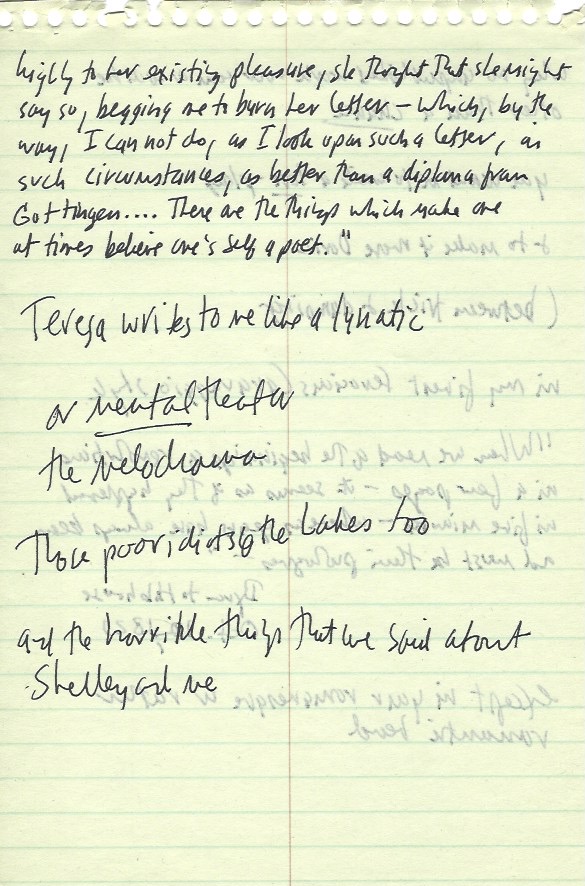 highly to her existing pleasure, she thought that she might
say so, begging me to burn her letter – which, by the
way, I can not do, as I look upon such a letter, in
such circumstances, as better than a diploma from
Gottingen.... These are the things which make one
at times believe one's self a poet."
Teresa writes to me like a lunatic
or mental theater
the melodrama
Those poor idiots of the Lakes too
and the horrible things that we said about
Shelley and me